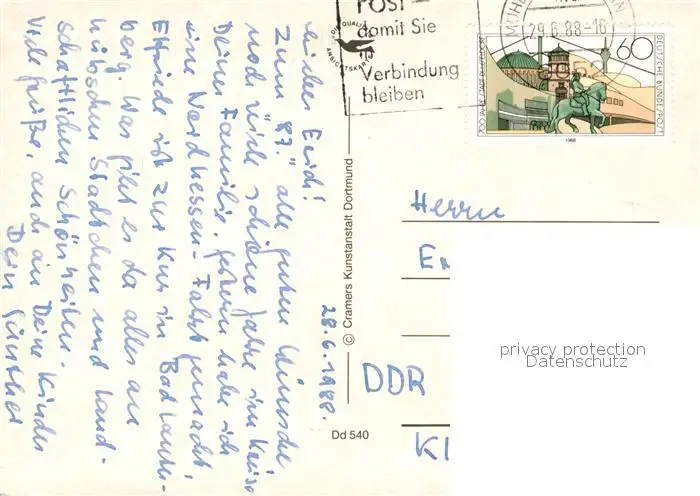 28.6.1988.
Lieber Erich!
Zum 87. alle guten Wünsche
noch viele schöne Jahre im Kreise
Deiner Familie. gestern habe ich
eine Nordhessen-Fahrt gemacht,
Elfriede ist zur Kur in Bad Lauter-
berg. Was gibt es da alles an
hübschen Städtchen und land-
schaftlichen Schönheiten.
Viele Grüße, auch an Deine Kinder
Dein Günther
© Cramers Kunstanstalt Dortmund
Dd 540
QUALITÄTS
ANSICHTSKARTEN
POST
damit Sie
in
Verbindung
bleiben
29.6.88-16
60
DEUTSCHE BUNDESPOST
700 JAHRE STADT DÜSSELDORF
1988
Herrn
DDR
privacy protection
Datenschutz